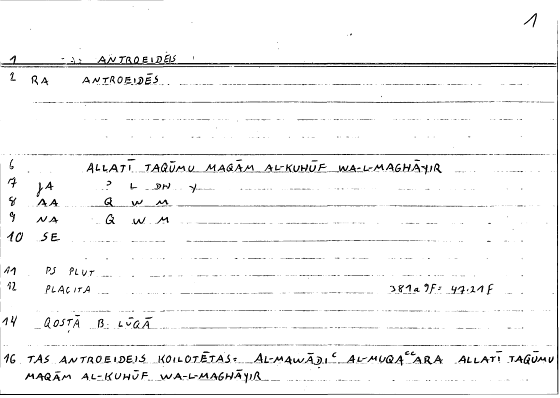 1
1 ANTROEIDĒS
2 RA ANTROEIDĒS
6 ALLATĪ TAQŪMU MAQĀM AL-KUHŪF WA-L-MAGHĀYIR
7 JA ? L DH Y
8 AA Q W M
9 NA Q W M
10 SE
11 PS PLUT
12 PLACITA 381a9f= 47.21f
14 QOSṬĀ B. LŪQĀ
16 TAS ANTROEIDEIS KOILOTĒTAS= AL-MAWĀḌIᶜ AL-MUQAᶜᶜARA ALLATĪ TAQŪMU
MAQĀM AL-KUHŪF WA-L-MAGHĀYIR